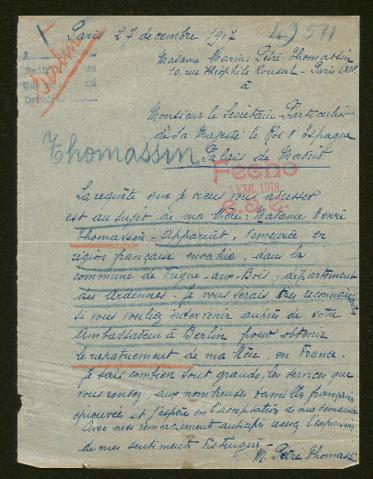 Paris 27 décembre 1917
Madame Marius Pétré-Thomassin
10, rue Théophile Roussel - Paris XII
à
Monsieur le Secrétaire Particulier
de Sa Majesté le Roi d'Espagne
Thomassin
Palais de Madrid
Fecho
ENE. 1918
La requête que je viens vous adresser
est au sujet de ma Mère: Madame
Thomassin-Appariet, demeurée en
région française envahie, dans la
commune de Vrigne-aux-Bois, département
des Ardennes. Je vous serais très reconnaissante
si vous vouliez intervenir auprès de votre
Ambassadeur à Berlin pour obtenir
le rapatriement de ma Mère, en France.
Je sais combien sont grands, les services que
vous rendez aux nombreuses familles françaises
éprouvées et j'espère en l'acceptation de ma demande
Avec mes remerciements anticipés recevez l'expression
de mes sentiments distingués
M. Pétré Thomassin